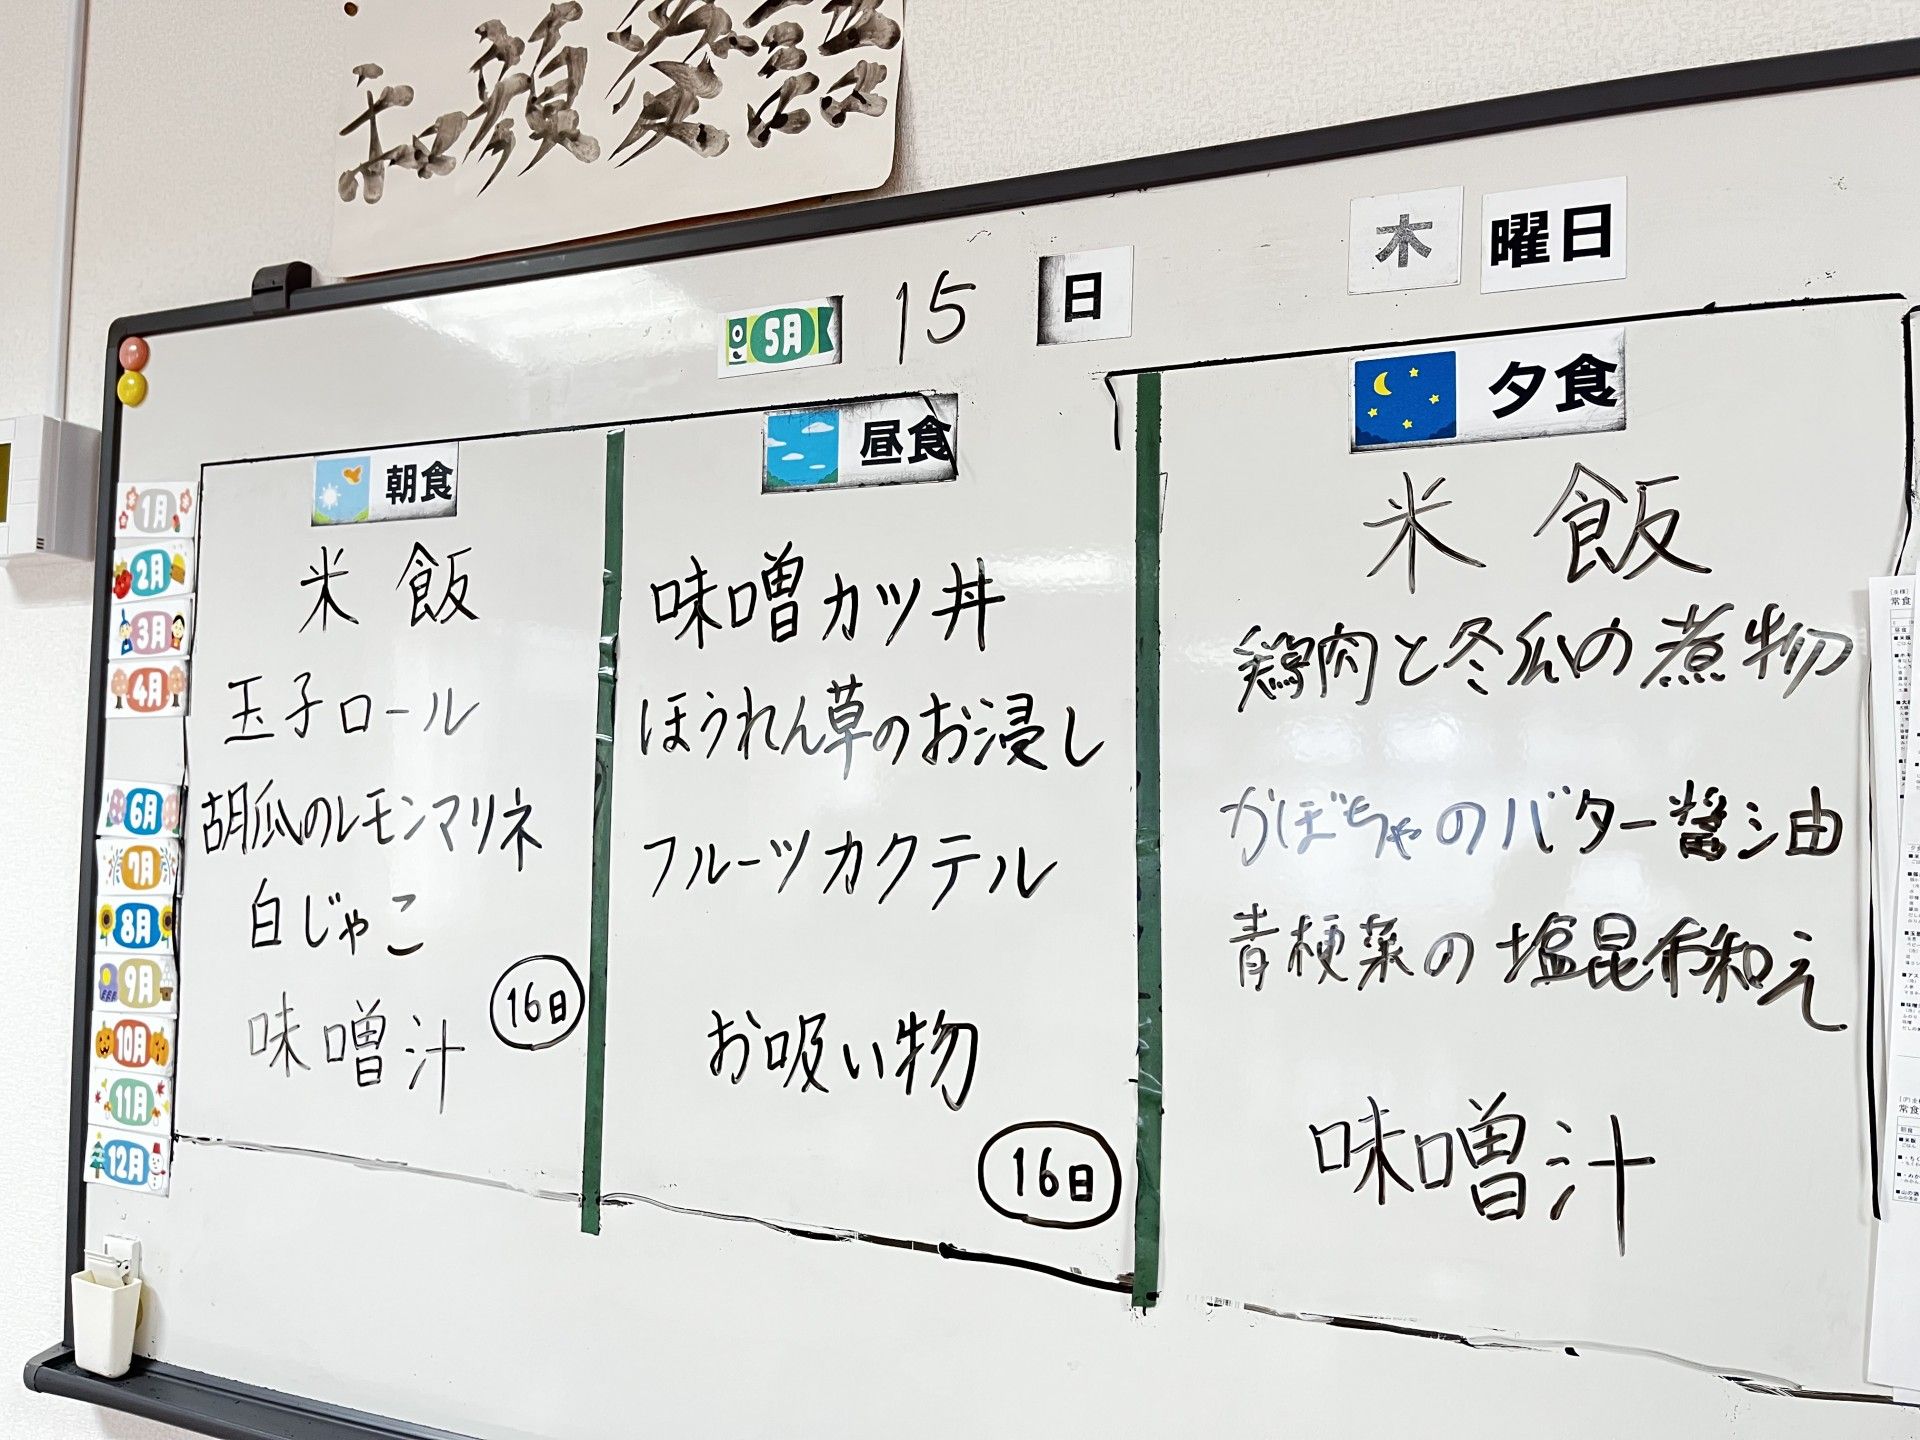 和顔愛語
5月 15 日 木 曜日
朝食
米飯
玉子ロール
胡瓜のレモンマリネ
白じゃこ
味噌汁
16日
昼食
味噌カツ丼
ほうれん草のお浸し
フルーツカクテル
お吸い物
16日
夕食
米飯
鶏肉と冬瓜の煮物
かぼちゃのバター醤油
青梗菜の塩昆布和え
味噌汁
1月
2月
3月
4月
6月
7月
8月
9月
10月
11月
12月